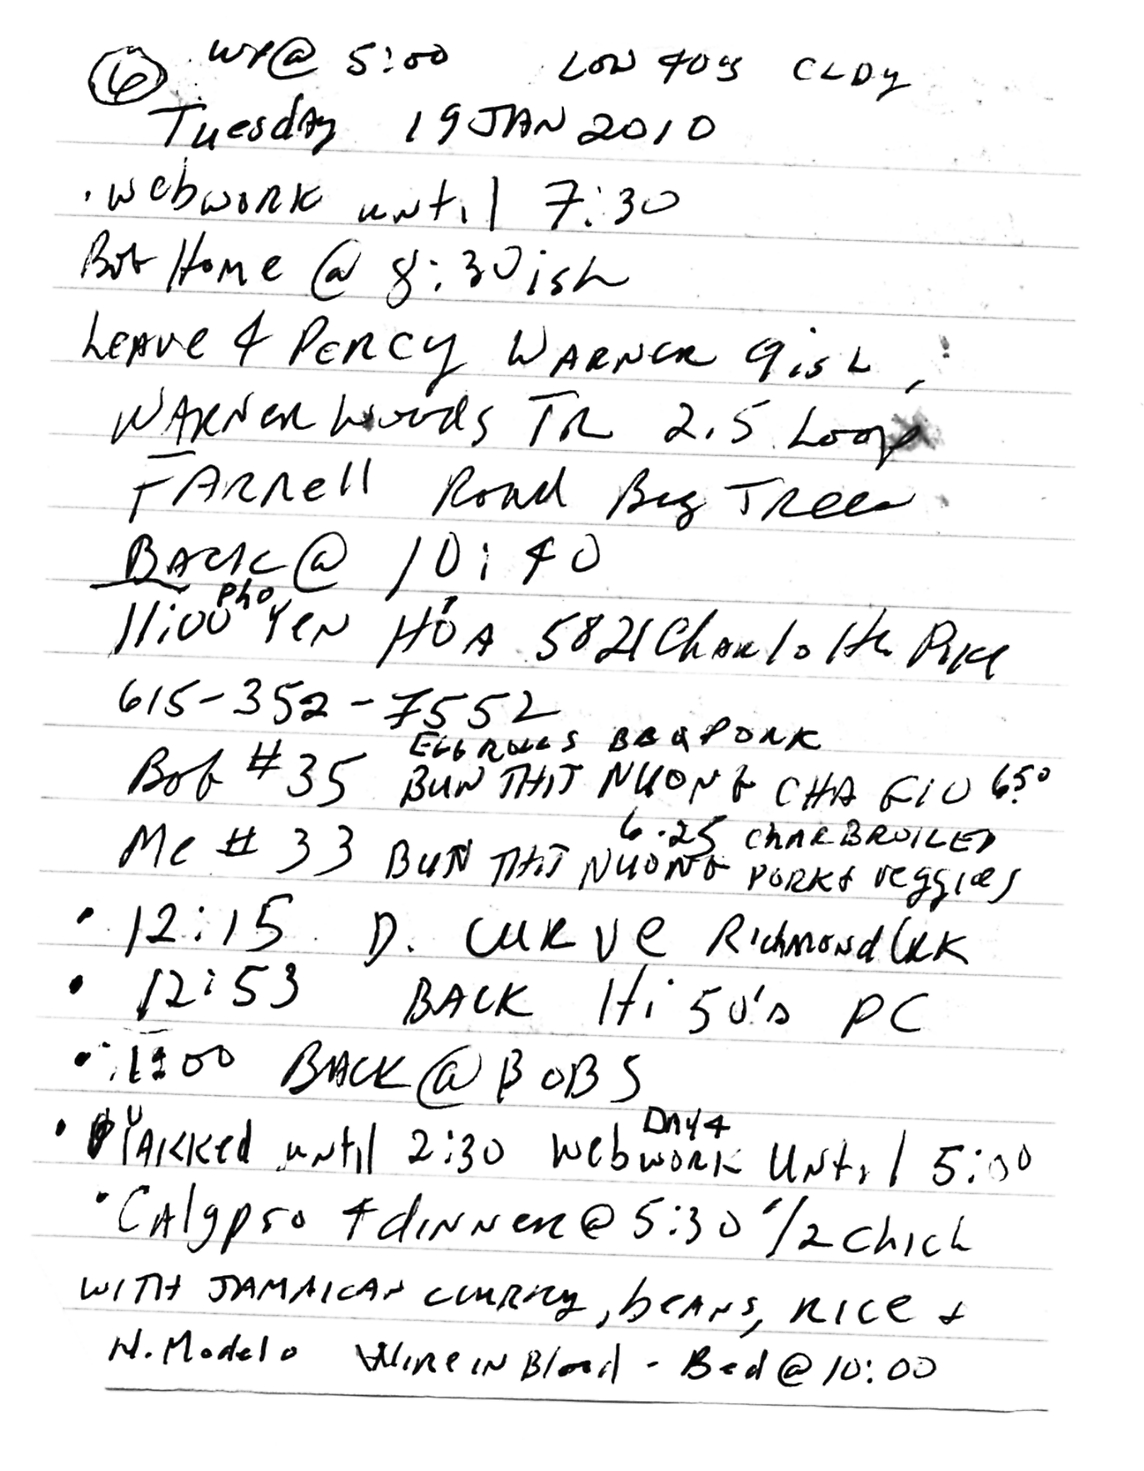 6 WX@ 5:00 LOW 40s CLDy
Tuesday 19 JAN 2010
. Webwork until 7:30
Bob Home @ 8:30ish
Leave 4 Percy Warner 9ish,
Warner Woods TR 2.5 Loop
Farrell Road Big Trees
Back @ 10:40
Pho
11:00 Yen HÒA 5821 Charlotte Pike
615-352-7552
EGG ROLLS BBQ PORK
Bob #35 BUN THIT NUONG CHA GIO 6.50
6.25 CHARBROILED
Me # 33 BUN THIT NUONG PORK & veggies
• 12:15 D. CURVE Richmond Crk
• 12:53 BACK Hi 50's PC
• 1:00 BACK @ BOBS
DAY 4
• Yakked until 2:30 Webwork Until 5:00
• Calypso 4 dinner @ 5:30 1/2 chick
WITH JAMAICAN CURRY, beans, RICE &
N. Modelo Wire in Blood - Bed @ 10:00